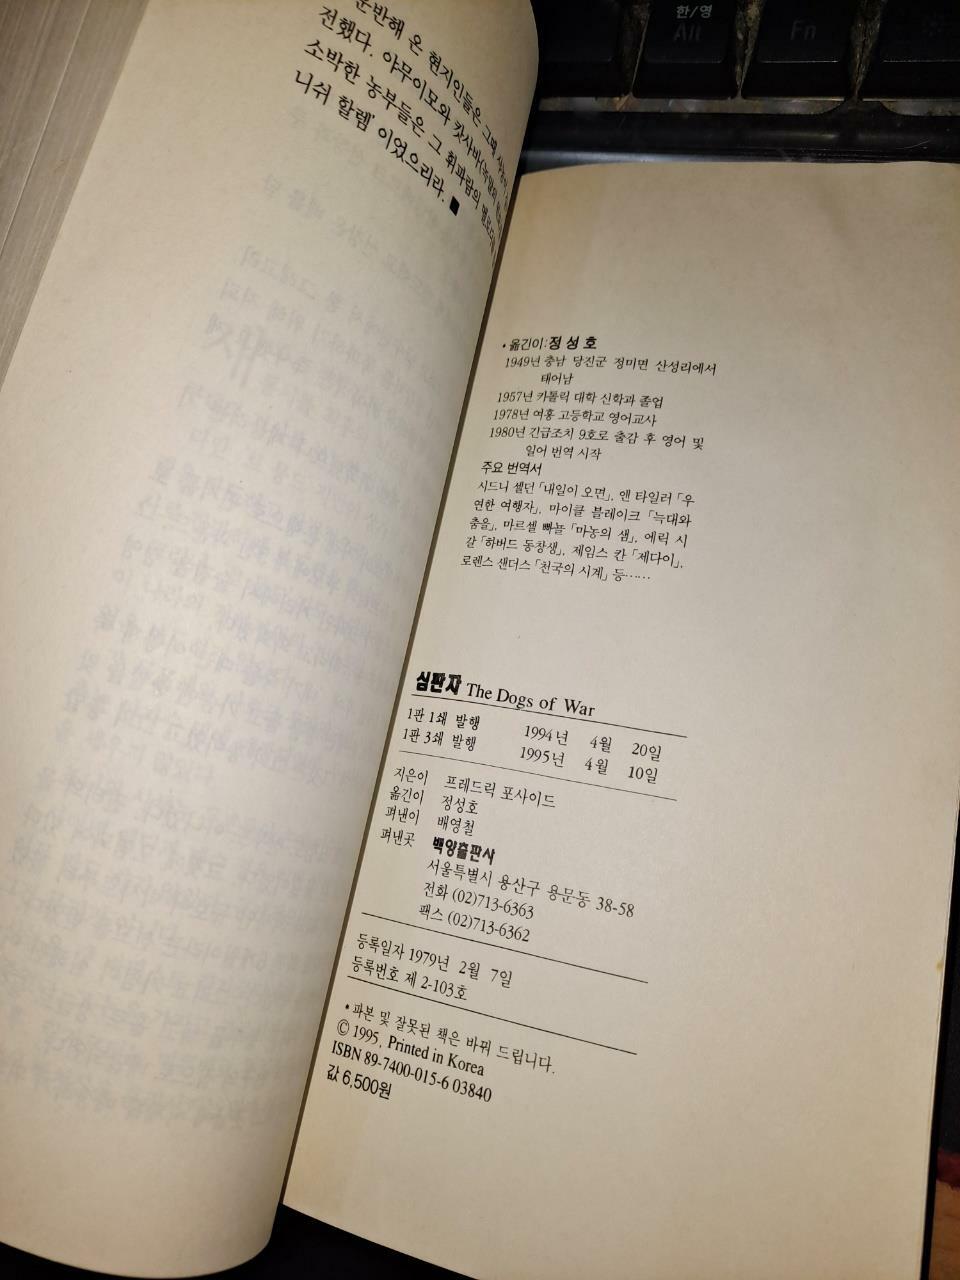 운반해 온 현지인들은 그때
전했다. 야무이모와 캇사바(녹말의
소박한 농부들은 그 휘파람의 멜로디
니쉬 할렘' 이었으리라. ■
한/영
Alt
Fn
• 옮긴이:정성호
1949년 충남 당진군 정미면 산성리에서
태어남
1957년 카톨릭 대학 신학과 졸업
1978년 여흥 고등학교 영어교사
1980년 긴급조치 9호로 출감 후 영어 및
일어 번역 시작
주요 번역서
시드니 셀던 「내일이 오면」, 앤 타일러 「우
연한 여행자」, 마이클 블레이크 「늑대와
춤을」, 마르셀 빠뇰 「마농의 샘」, 에릭 시
갈 「하버드 동창생」, 제임스 칸 「제다이」,
로렌스 샌더스 「천국의 시계」 등……
심판자 The Dogs of War
1판 1쇄 발행 1994년 4월 20일
1판 3쇄 발행 1995년 4월 10일
지은이 프레드릭 포사이드
옮긴이 정성호
펴낸이 배영철
펴낸곳 백양출판사
서울특별시 용산구 용문동 38-58
전화 (02)713-6363
팩스 (02)713-6362
등록일자 1979년 2월 7일
등록번호 제 2-103호
• 파본 및 잘못된 책은 바꿔 드립니다.
© 1995, Printed in Korea
ISBN 89-7400-015-6 03840
값 6,500원